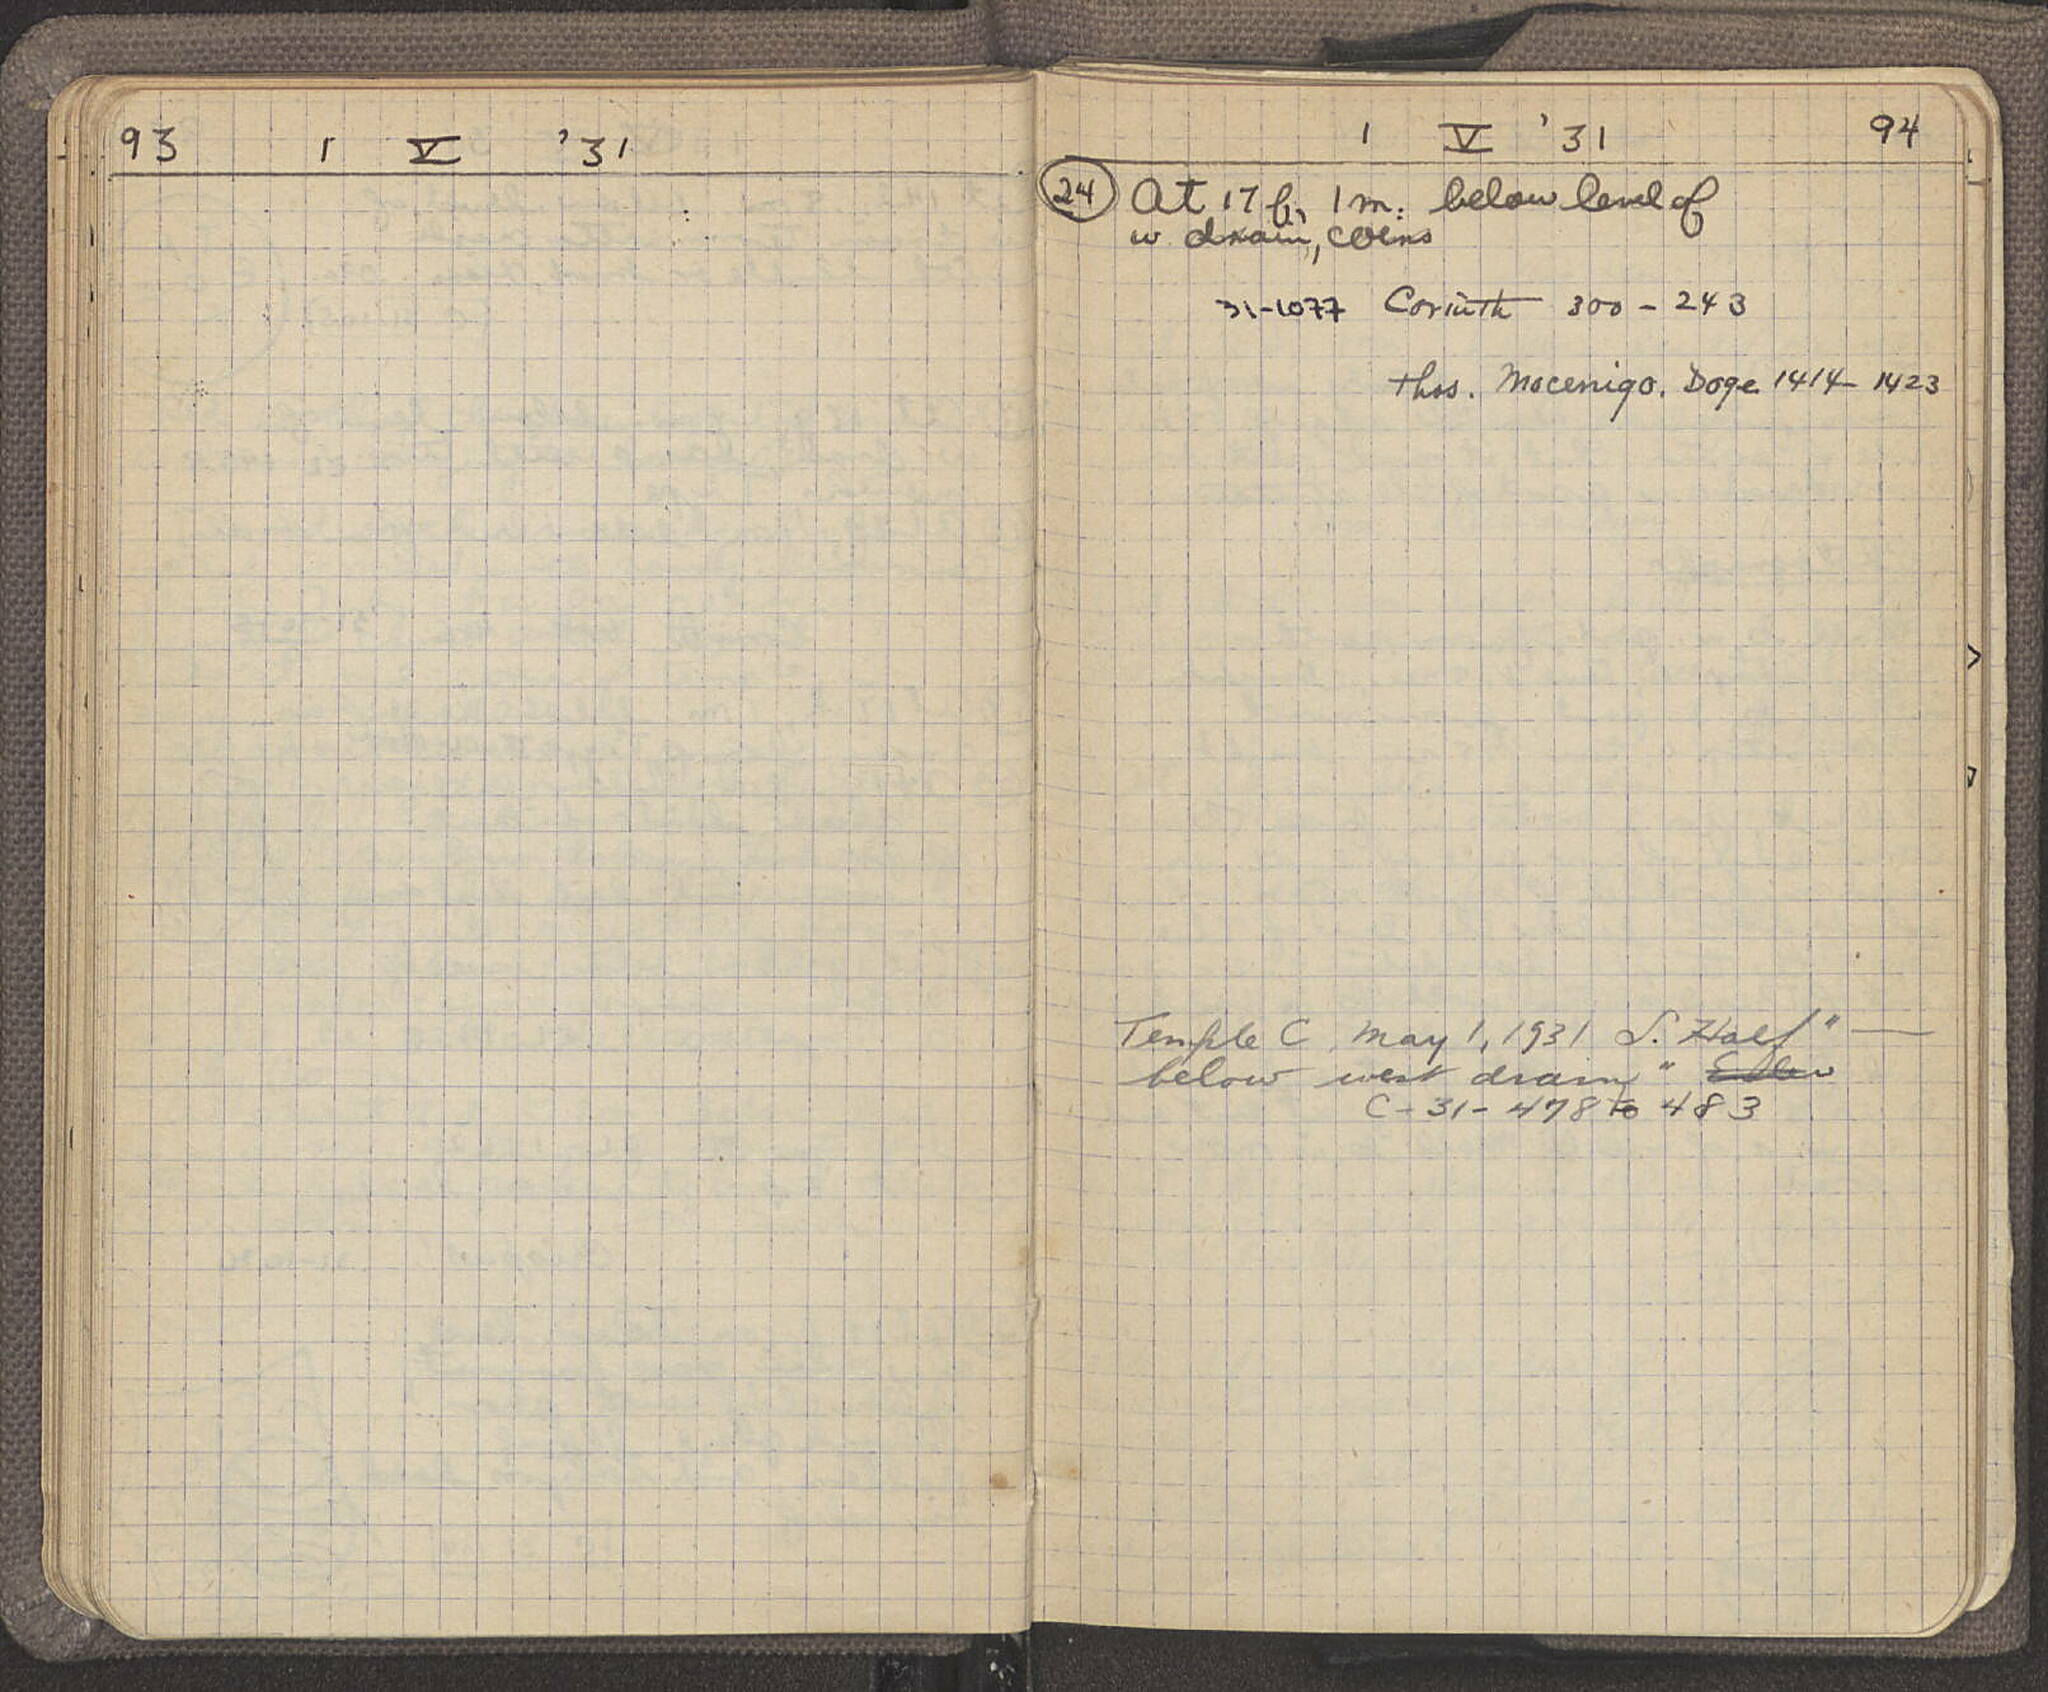 93 1 V '31
1 V '31 94
24 At 17 f, 1 m. below level of
w drain, coins
31-1077 Corinth 300 - 243
Thos. Mocenigo. Doge 1414 - 1423
Temple C, May 1, 1931 S. Half " —
below west drain "
C - 31 - 478 to 483